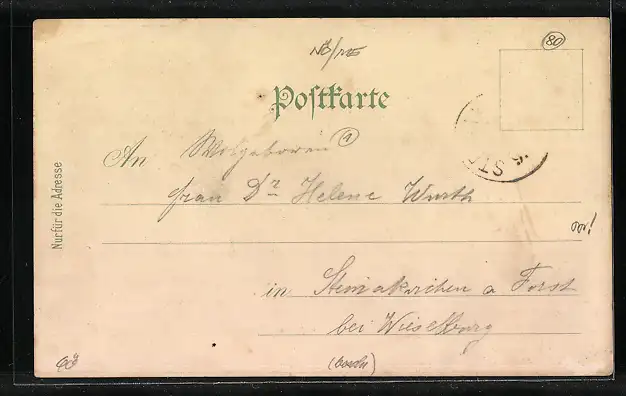 NÖ/
80
Postkarte
4
An Wolgeboren
Frau Dr. Helene Wurth
Nur für die Adresse
in Steinakirchen a Forst
bei Wieselburg